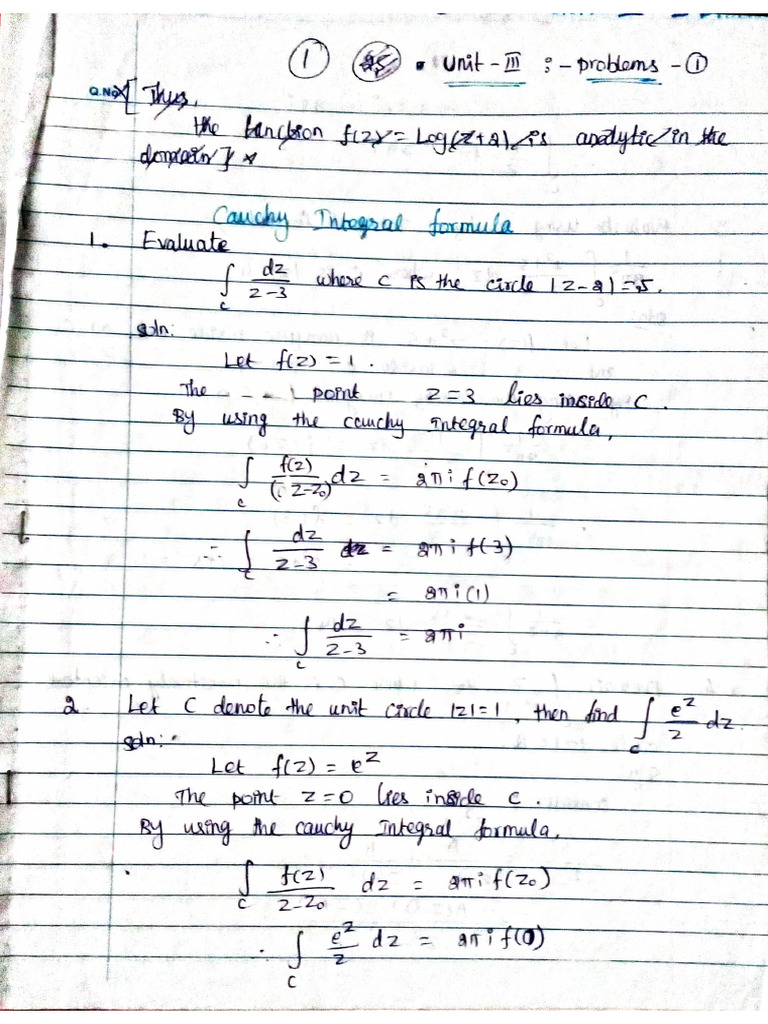 ① • Unit - III :- problems - ①
Q.No Thus,
the function f(z) = Log(z+2) is analytic in the
domain
Cauchy Integral formula
1. Evaluate
∫_c dz/(z-3) where c is the circle |z-2|=5.
soln:
Let f(z) = 1.
The - - - point z=3 lies inside c.
By using the cauchy integral formula,
∫_c f(z)/(z-z₀) dz = 2πi f(z₀)
∴ ∫_c dz/(z-3) = 2πi f(3)
= 2πi(1)
∴ ∫_c dz/(z-3) = 2πi
2. Let C denote the unit circle |z|=1, then find ∫_c e^z/z dz.
soln:
Let f(z) = e^z
The point z=0 lies inside c.
By using the cauchy Integral formula,
∫_c f(z)/(z-z₀) dz = 2πi f(z₀)
∴ ∫_c e^z/z dz = 2πi f(0)